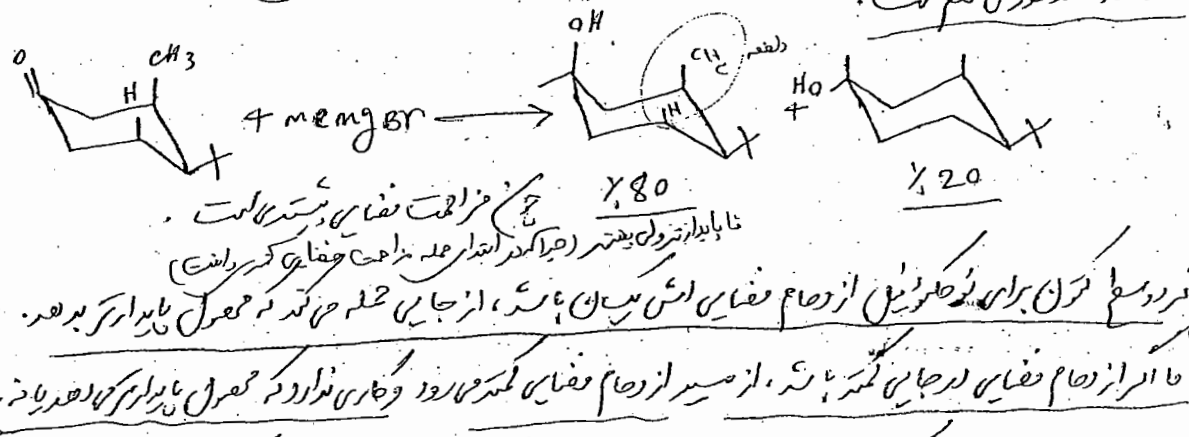 OH
O
CH3
H
CH3
دافعه
H
HO
+ MeMgBr
+
%80
%20
چون مزاحمت فضایی بیشتری است.
ناپایدارتر ولی بیشتر (چرا که در ابتدای حمله مزاحمت فضایی کمتری داشت)
دو سطح کتون برای نوکلئوفیل ازدحام فضایی اش یکسان باشد، از جایی حمله می کند که محصول پایدارتر بدهد.
اما اگر ازدحام فضایی در جایی کمتر باشد، از مسیر ازدحام فضایی کمتر می رود و کاری ندارد که محصول پایدارتر می دهد یا نه.